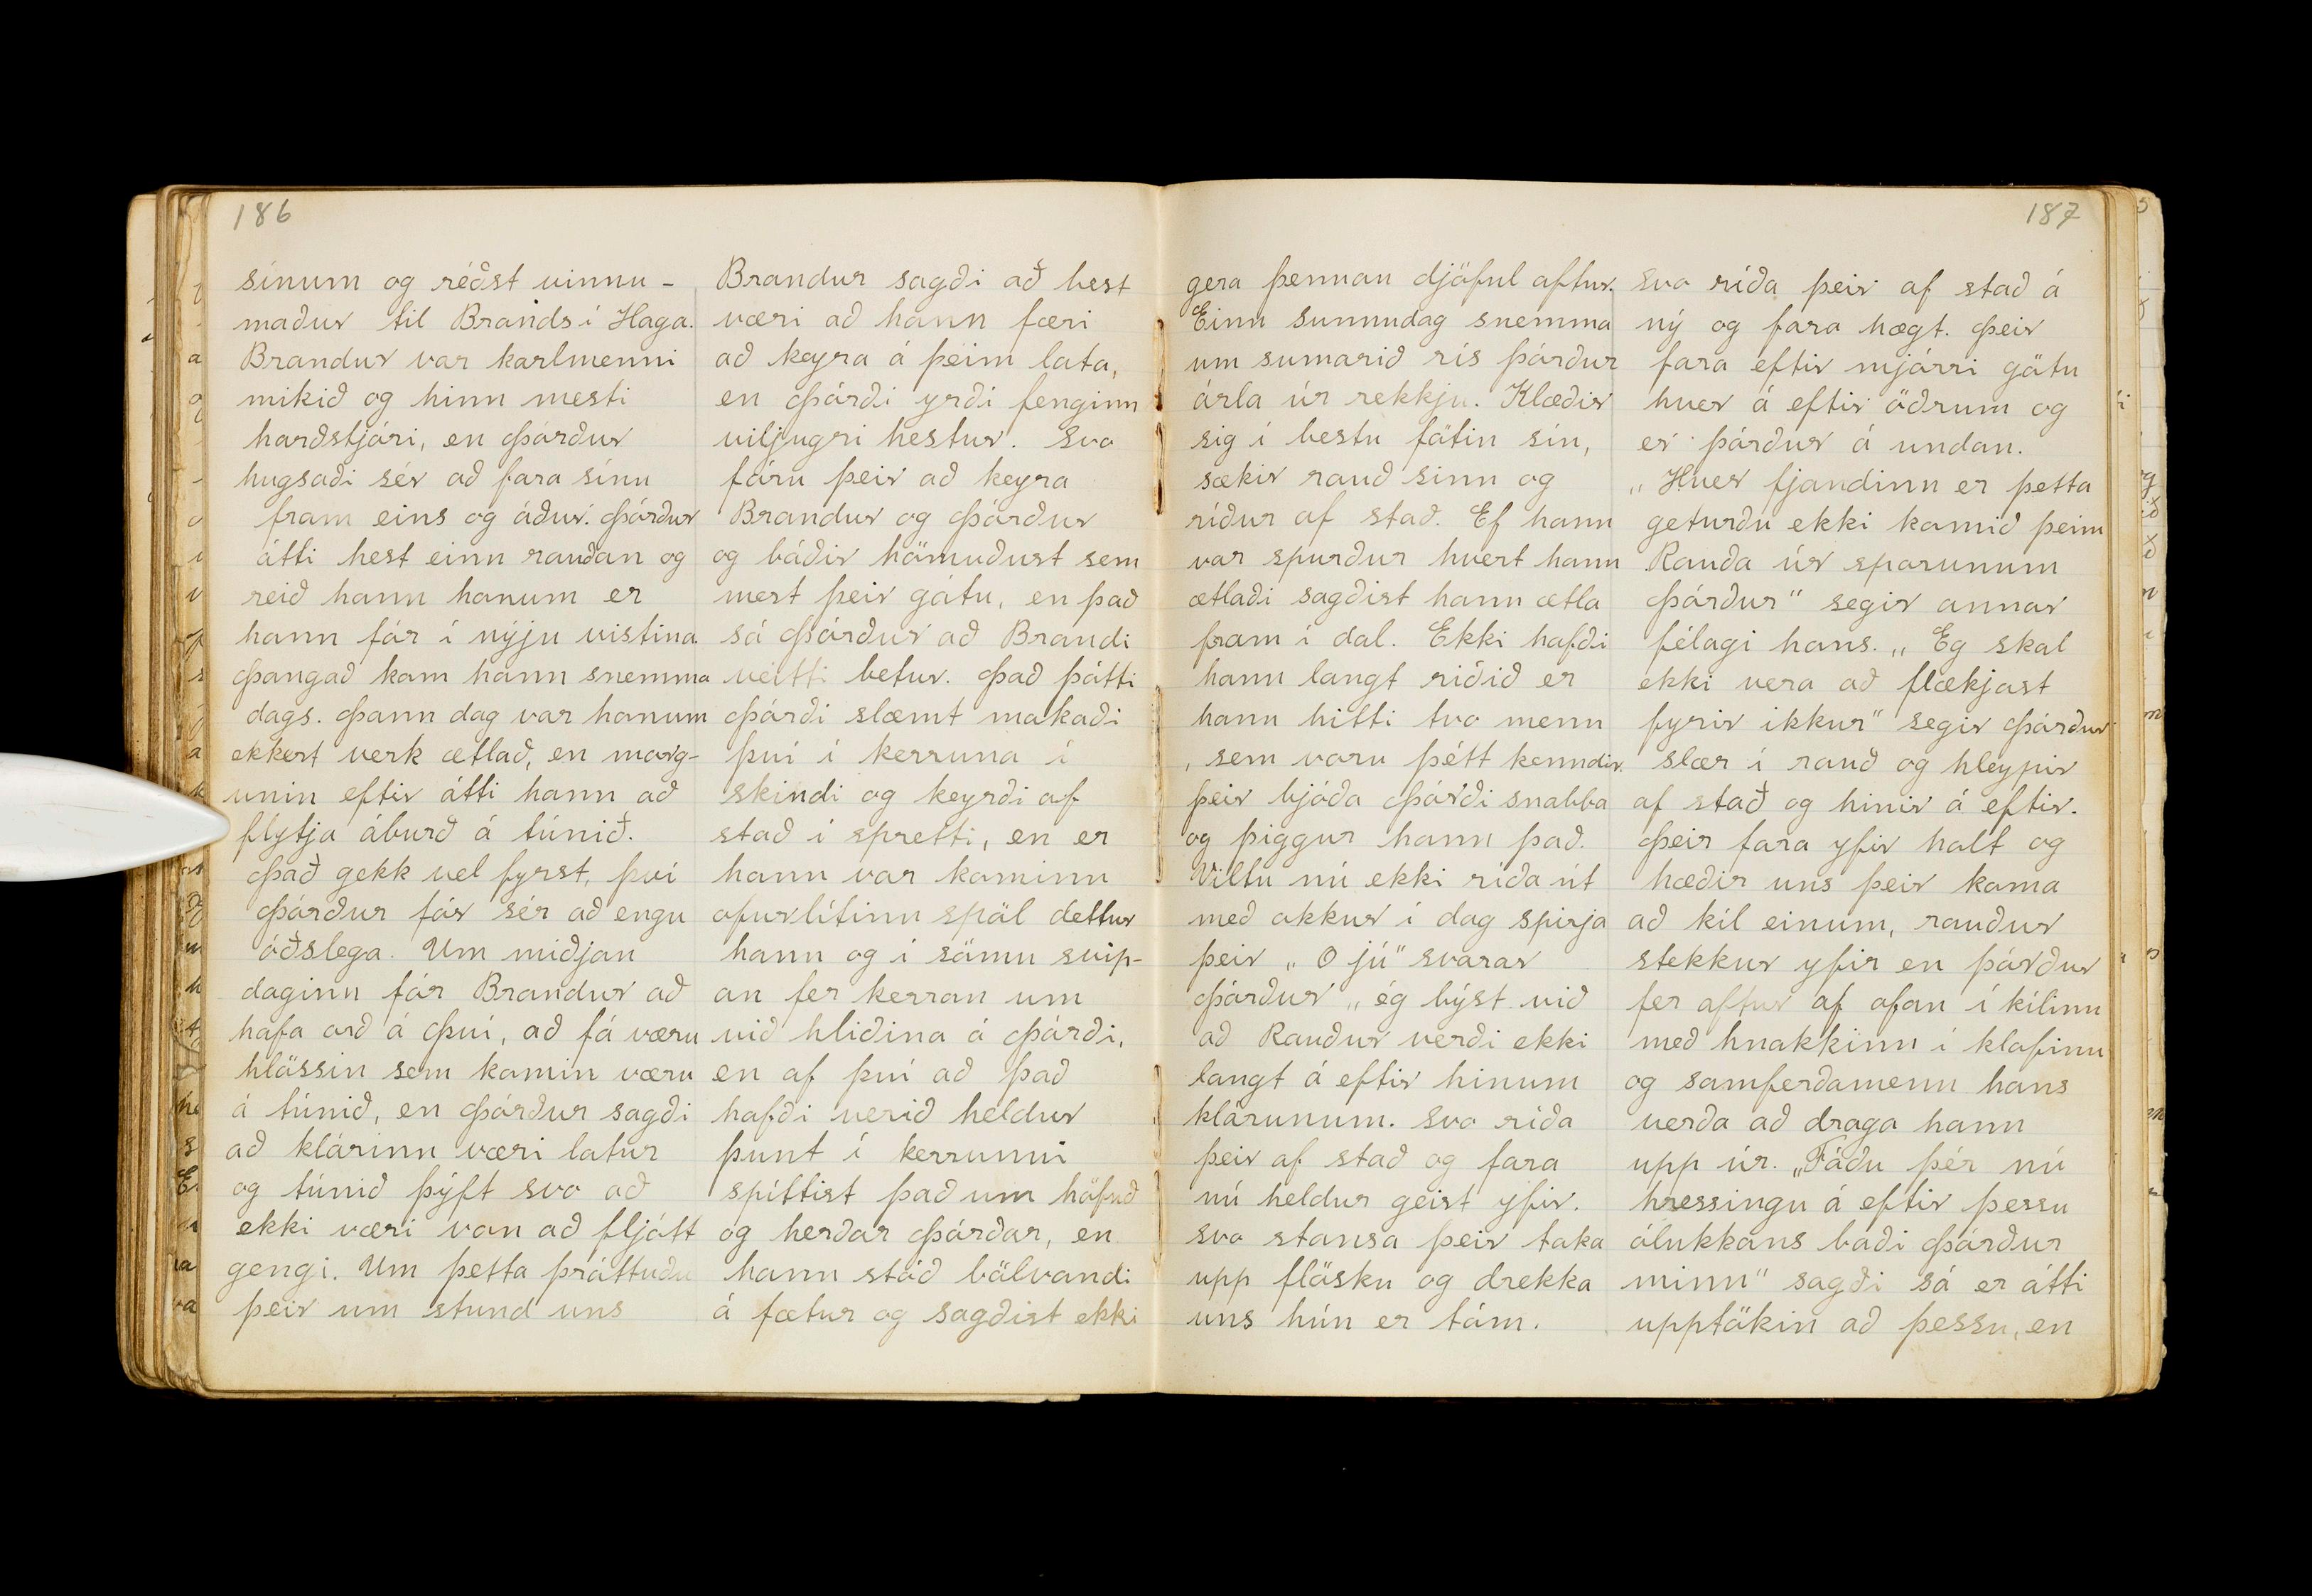 186
sínum og réðst vinnu-
maður til Brands í Haga.
Brandur var karlmenni
mikið og hinn mesti
harðstjóri, en Þórður
hugsaði sér að fara sínu
fram eins og áður. Þórður
átti hest einn rauðan og
reið hann honum er
hann fór í nýju vistina.
Þangað kom hann snemma
dags. Þann dag var honum
ekkert verk ætlað, en morg-
unin eftir átti hann að
flytja áburð á túnið.
Það gekk vel fyrst, því
Þórður fór sér að engu
óðslega. Um miðjan
daginn fór Brandur að
hafa orð á því, að fá væru
hlössin sem komin væru
á túnið, en Þórður sagði
að klárinn væri latur
og túnið þýft svo að
ekki væri von að fljótt
gengi. Um þetta þráttuðu
þeir um stund uns
Brandur sagði að best
væri að hann færi
að keyra á þeim lata,
en Þórði yrði fenginn
viljugri hestur. Svo
fóru þeir að keyra
Brandur og Þórður
og báðir hömuðust sem
mest þeir gátu, en það
sá Þórður að Brandi
veitti betur. Það þótti
Þórði slæmt mokaði
því í kerruna í
skindi og keyrði af
stað í spretti, en er
hann var kominn
ofurlítinn spöl dettur
hann og í sömu svip-
an fer kerran um
við hliðina á Þórði,
en af því að það
hafði verið heldur
þunt í kerrunni
spíttist það um höfuð
og herðar Þórðar, en
hann stóð bölvandi
á fætur og sagðist ekki
187
gera þennan djöful aftur.
Einn sunnudag snemma
um sumarið rís Þórður
árla úr rekkju. Klæðir
sig í bestu fötin sín,
sækir rauð sinn og
ríður af stað. Ef hann
var spurður hvert hann
ætlaði sagðist hann ætla
fram í dal. Ekki hafði
hann langt riðið er
hann hitti tvo menn
, sem voru þétt kenndir.
þeir bjóða Þórði snabba
og þiggur hann það.
Viltu nú ekki ríða út
með okkur í dag spirja
þeir „O jú" svarar
Þórður „ég býst við
að Rauður verði ekki
langt á eftir hinum
klárunum. Svo ríða
þeir af stað og fara
nú heldur geist yfir.
Svo stansa þeir taka
upp flösku og drekka
uns hún er tóm.
Svo ríða þeir af stað á
ný og fara hægt. Þeir
fara eftir mjórri götu
hver á eftir öðrum og
er Þórður á undan.
„Hver fjandinn er þetta
geturðu ekki komið þeim
Rauða úr sporunum
Þórður" segir annar
félagi hans. „Eg skal
ekki vera að flækjast
fyrir ikkur" segir Þórður
slær í rauð og hleypir
af stað og hinir á eftir.
Þeir fara yfir holt og
hæðir uns þeir koma
að kíl einum, rauður
stekkur yfir en Þórður
fer aftur af ofan í kílinn
með hnakkinn í klofinu
og samferðamenn hans
verða að draga hann
upp úr. „Fáðu þér nú
hressingu á eftir þessu
ólukkans baði Þórður
minn" sagði sá er átti
upptökin að þessu, en